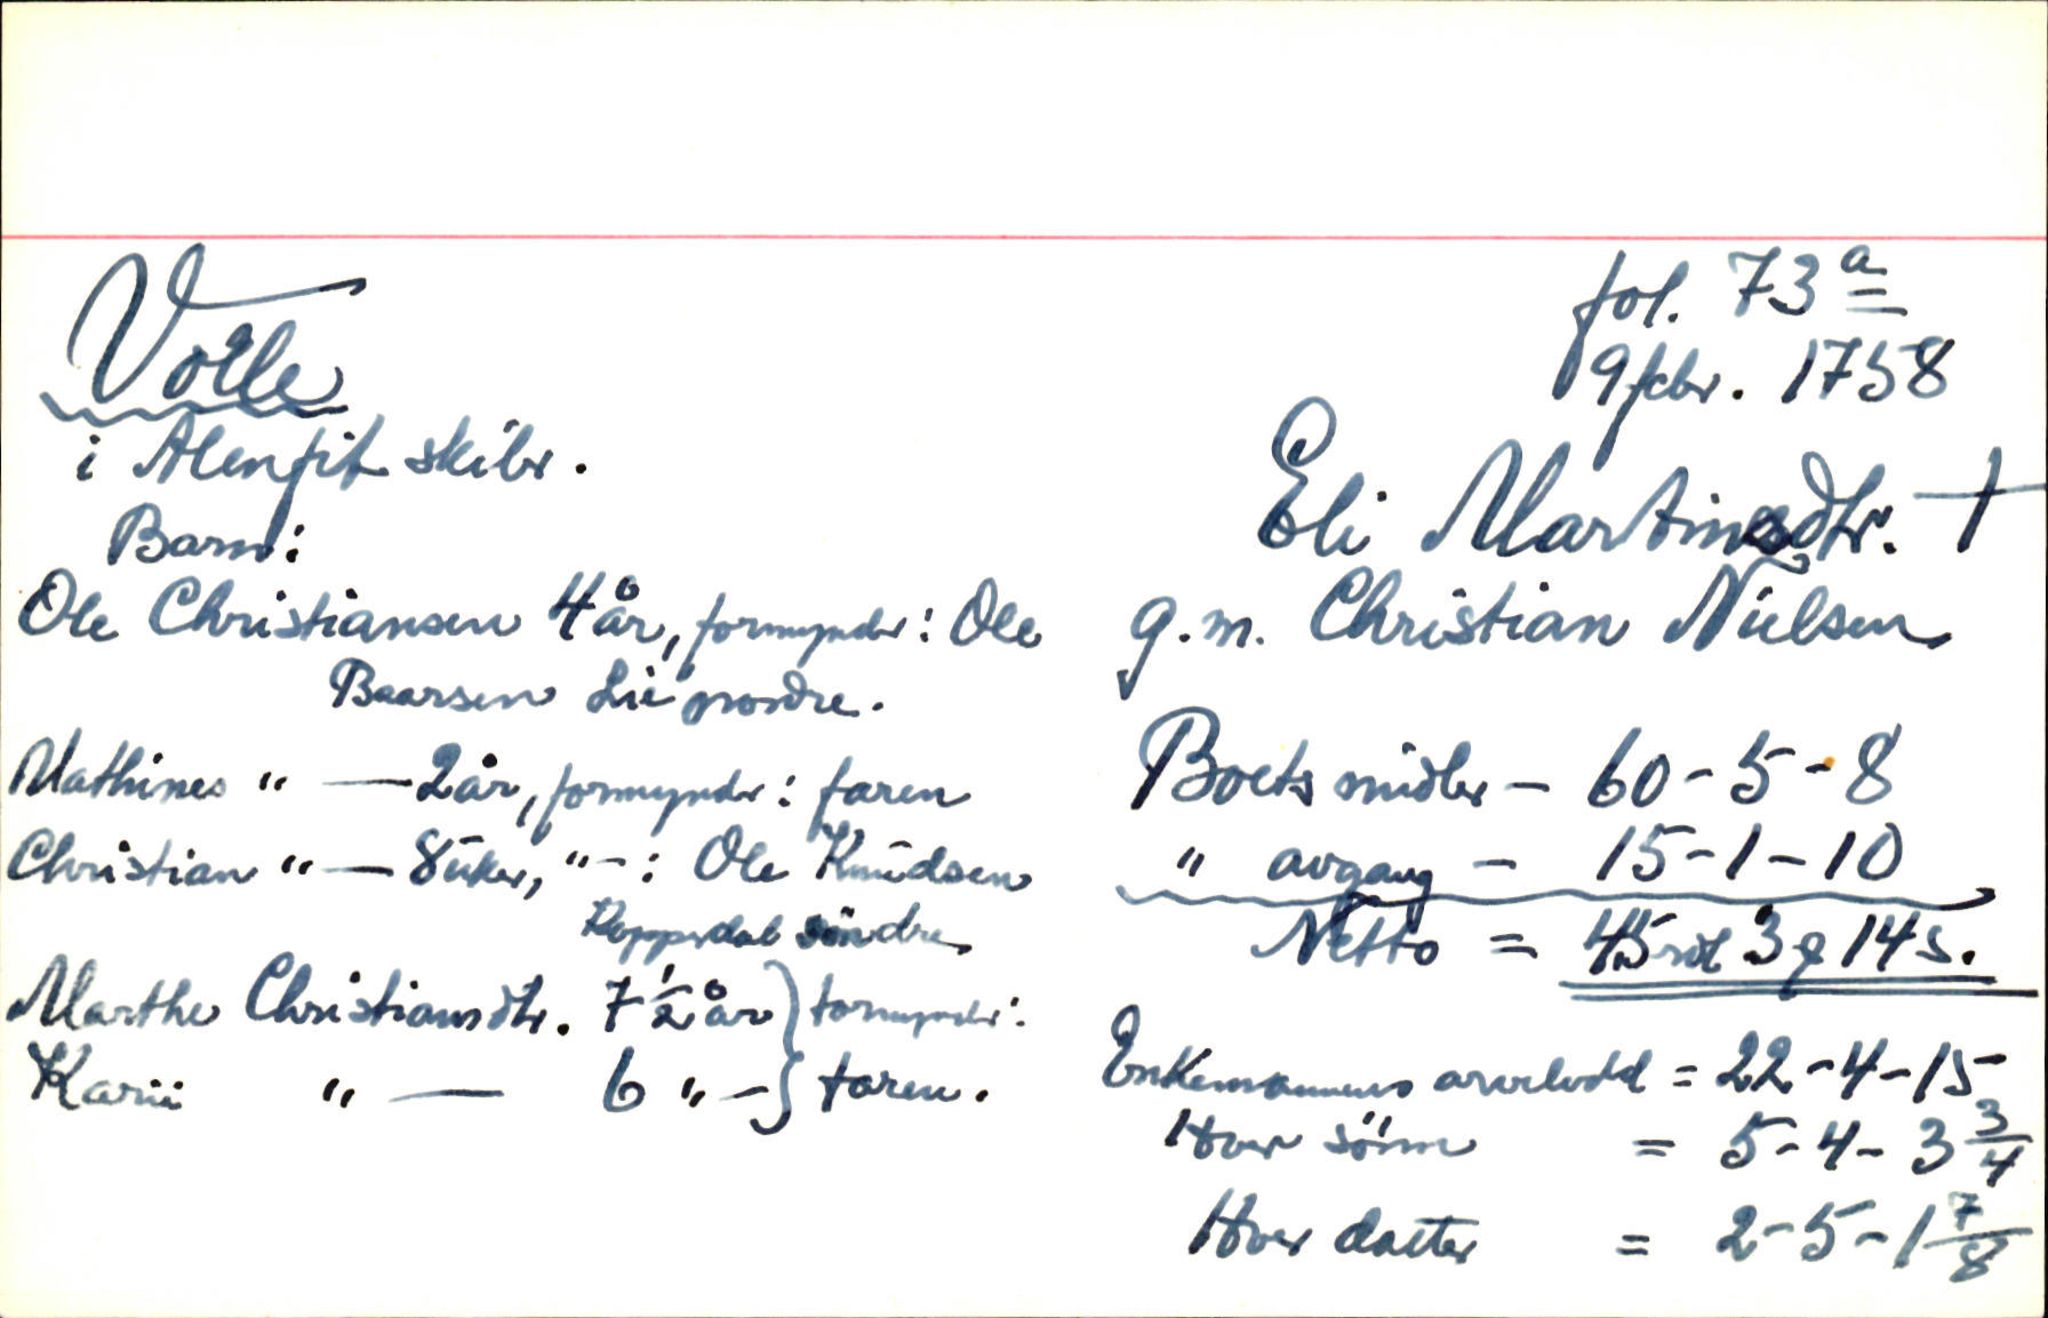 Volle
i Alenfit skibr.
Barn:
Ole Christiansen 4 år, formynder: Ole
Baarsen Lie nordre.
Mathines " — 2 år, formynder: faren
Christian " — 8 uker, " - : Ole Knudsen
søndre
Marthe Christiansdtr. 7 1/2 år } formynder:
Karii " — 6 " - } faren.
fol. 73 a
9 febr. 1758
Eli Martinsdtr. †
g.m. Christian Nielsen
Boets midler - 60 - 5 - 8
" avgang - 15 - 1 - 10
Netto = 45 rdl 3 ç 14 s.
Enkemannens arvelodd = 22 - 4 - 15
Hver sönn = 5 - 4 - 3 3/4
Hver datter = 2 - 5 - 1 7/8